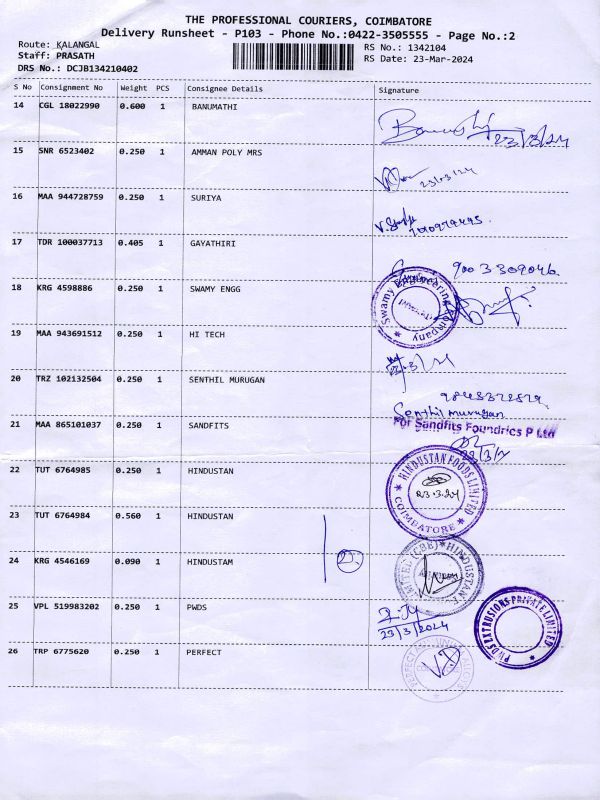 THE PROFESSIONAL COURIERS, COIMBATORE
Delivery Runsheet - P103 - Phone No.:0422-3505555 - Page No.:2
Route: KALANGAL
RS No.: 1342104
Staff: PRASATH
RS Date: 23-Mar-2024
DRS No.: DCJB134210402
S No Consignment No Weight PCS Consignee Details Signature
14 CGL 18022990 0.600 1 BANUMATHI
23/3/24
15 SNR 6523402 0.250 1 AMMAN POLY MRS
23/3/24
16 MAA 944728759 0.250 1 SURIYA
17 TDR 100037713 0.405 1 GAYATHIRI
9003309046.
18 KRG 4598886 0.250 1 SWAMY ENGG
Swamy Engineering Company
19 MAA 943691512 0.250 1 HI TECH
20 TRZ 102132504 0.250 1 SENTHIL MURUGAN
Senthil murugan
21 MAA 865101037 0.250 1 SANDFITS
For Sandfits Foundries P Ltd
22 TUT 6764985 0.250 1 HINDUSTAN
HINDUSTAN FOODS LIMITED
COIMBATORE
23.3.24
23 TUT 6764984 0.560 1 HINDUSTAN
24 KRG 4546169 0.090 1 HINDUSTAM
25 VPL 519983202 0.250 1 PWDS
23/3/2024
EXTRUSIONS PRIVATE LIMITED
26 TRP 6775620 0.250 1 PERFECT